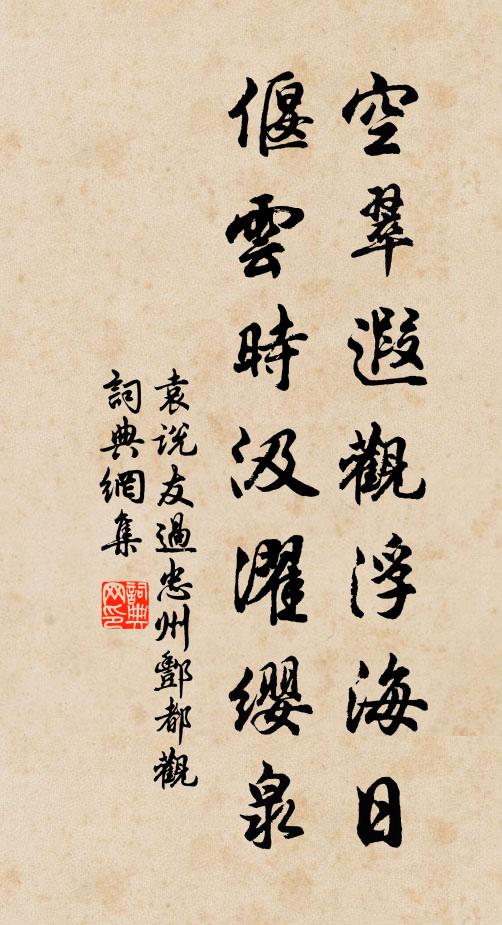 空翠遐觀浮海日
偃雲時汲濯纓泉
袁说友過忠州酆都觀
詞典網集
詞典网印